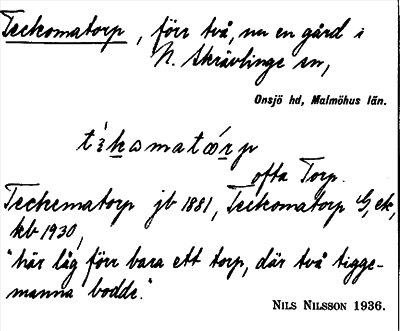 Teckomatorp, förr två, nu en gård i
N. Skrävlinge sn,
Onsjö hd, Malmöhus län.
ofta Torp.
Teckematorp jb 1881, Teckomatorp G, ek,
kb 1930,
"här låg förr bara ett torp, där två tigge-
manna bodde."
NILS NILSSON 1936.